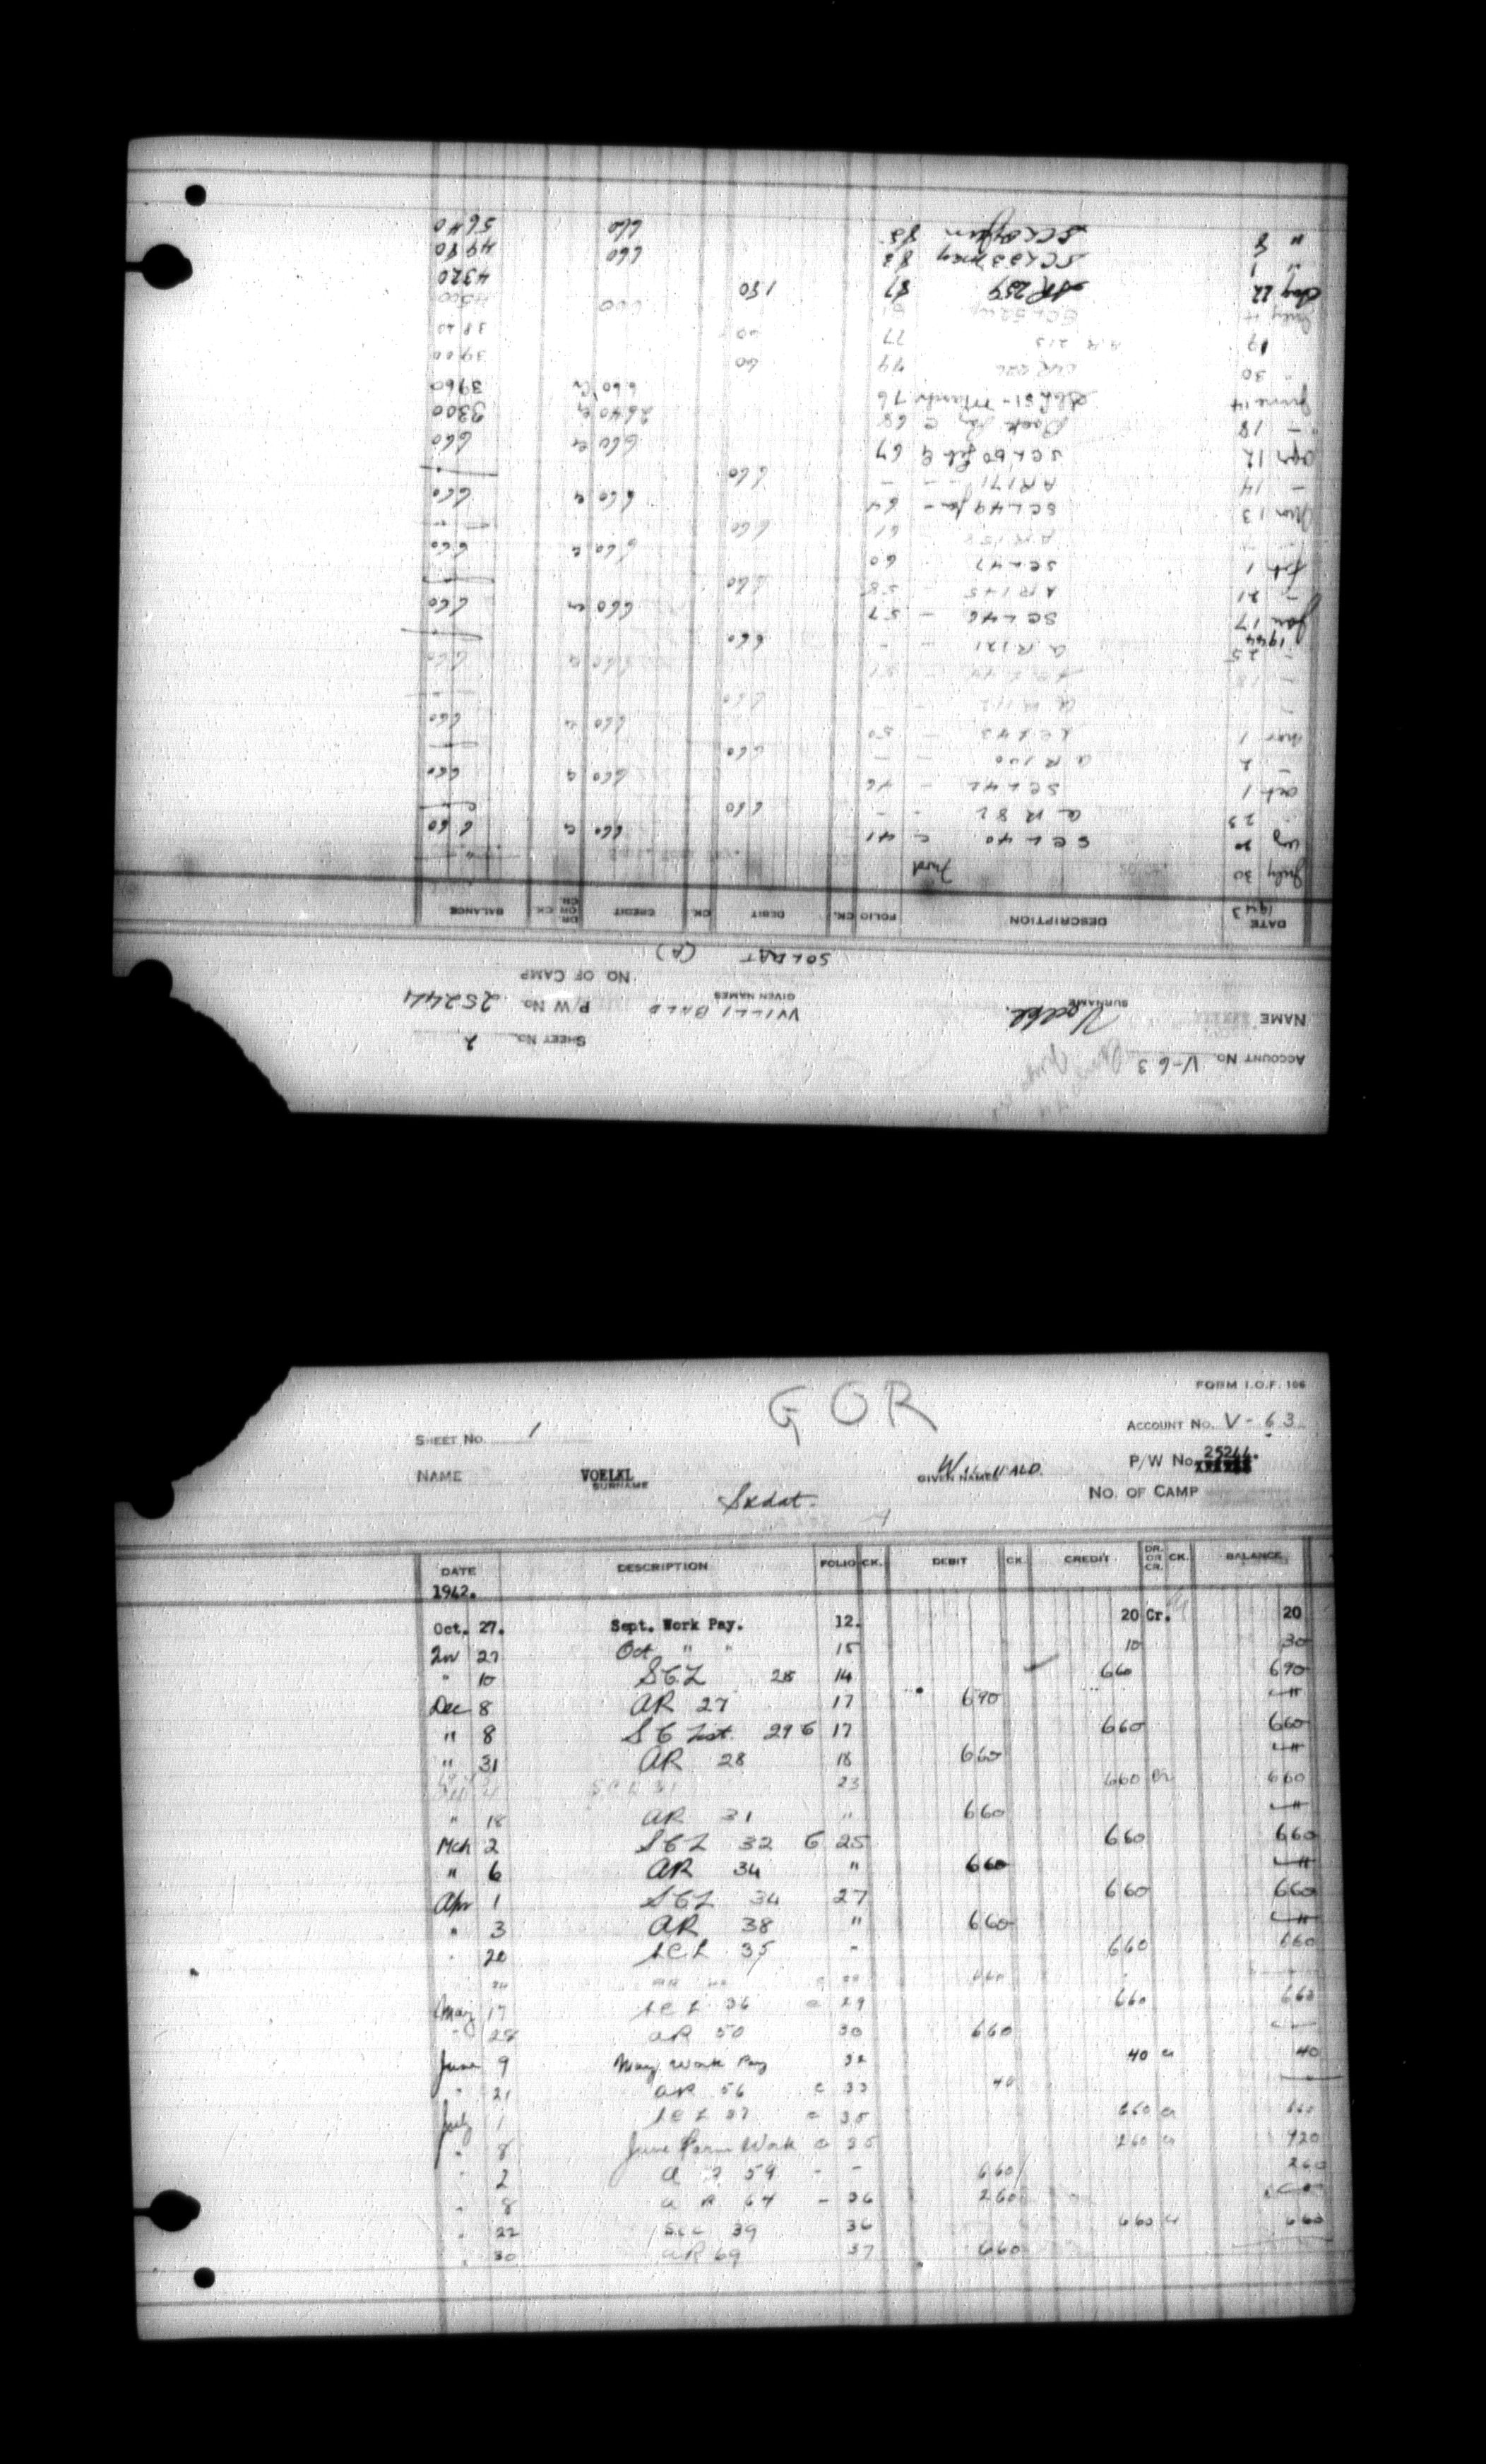 FORM I.O.F. 106
GOR
SHEET No. 1
ACCOUNT No. V-63
NAME VOELKL
SURNAME
WILLIBALD
GIVEN NAMES
P/W No. 25244.
Soldat.
No. OF CAMP
DATE DESCRIPTION FOLIO CK. DEBIT CK. CREDIT DR. OR CR. CK. BALANCE
1942.
Oct. 27. Sept. Work Pay. 12. 20 Cr. 20
27 Oct " " 15 10 30
" 10 SCL 28 14 660 690
Dec 8 AR 27 17 690
" 8 SC List 29 17 660 660
" 31 AR 28 18 660
SCL 31 23 660 Cr 660
" 18 AR 31 " 660
Mch 2 SCL 32 25 660 660
" 6 AR 34 " 660
Apr 1 SCL 34 27 660 660
" 3 AR 38 " 660
" 20 SCL 35 - 660 660
May 17 SCL 36 29 660 660
" 28 AR 50 30 660
June 9 May Work Pay 32 40 Cr 40
" 21 AR 56 c 33 40
July 1 SCL 37 35 660 Cr 660
" 8 June Farm Work 35 260 Cr 920
" 2 AR 59 - - 660 260
" 8 AR 64 - 36 260
" 22 SCL 39 36 660 Cr 660
" 30 AR 69 37 660
ACCOUNT No. V-63
SHEET No. 2
NAME Voelkl.
SURNAME
WILLIBALD
GIVEN NAMES
P/W No. 25244
NO. OF CAMP
SOLDAT (A)
DATE DESCRIPTION FOLIO CK. DEBIT CK. CREDIT DR. OR CR. CK. BALANCE
1943
July 30 Fwd
SCL 40 c 41 660 Cr 660
23 AR 82 - - 660
Oct 1 SCL 42 - 46 660 Cr 660
- 2 AR 100 - - 660
Nov 1 SCL 43 - 50 660 Cr 660
AR 112 - - 660
- 18 660 Cr 660
- 25 AR 121 - - 660
1944
Jan 17 SCL 46 - 57 660 Cr 660
- 21 AR 145 - 58 660
Feb 1 SCL 47 60 660 Cr 660
61 660
Mar 13 SCL 49 Jan - 64 660 Cr 660
- 14 AR 171 - - 660
Apr 12 SCL 50 Feb 67 660 Cr 660
- 18 Back Pay c 68 2640 Cr 3300
June 14 SCL 51 - March 76 660 Cr 3960
" 30 AR 226 79 60 3900
19 AR 213 77 60 3840
July 660 4500
Aug 22 AR 259 87 180 4320
" 1 SCL 53 May 82 660 4980
" 8 June 83 660 5640